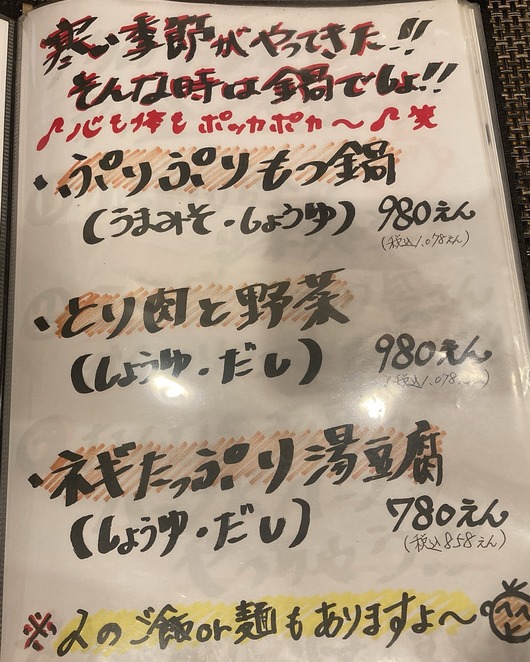 寒い季節がやってきた!!
そんな時は鍋でしょ!!
♪心も体もポッカポカ〜♪笑
・ぷりぷりもつ鍋
(うまみそ・しょうゆ) 980えん
(税込1,078えん)
・とり肉と野菜
(しょうゆ・だし) 980えん
(税込1,078えん)
・ネギたっぷり湯豆腐
(しょうゆ・だし) 780えん
(税込858えん)
※〆のご飯or麺もありますよ〜